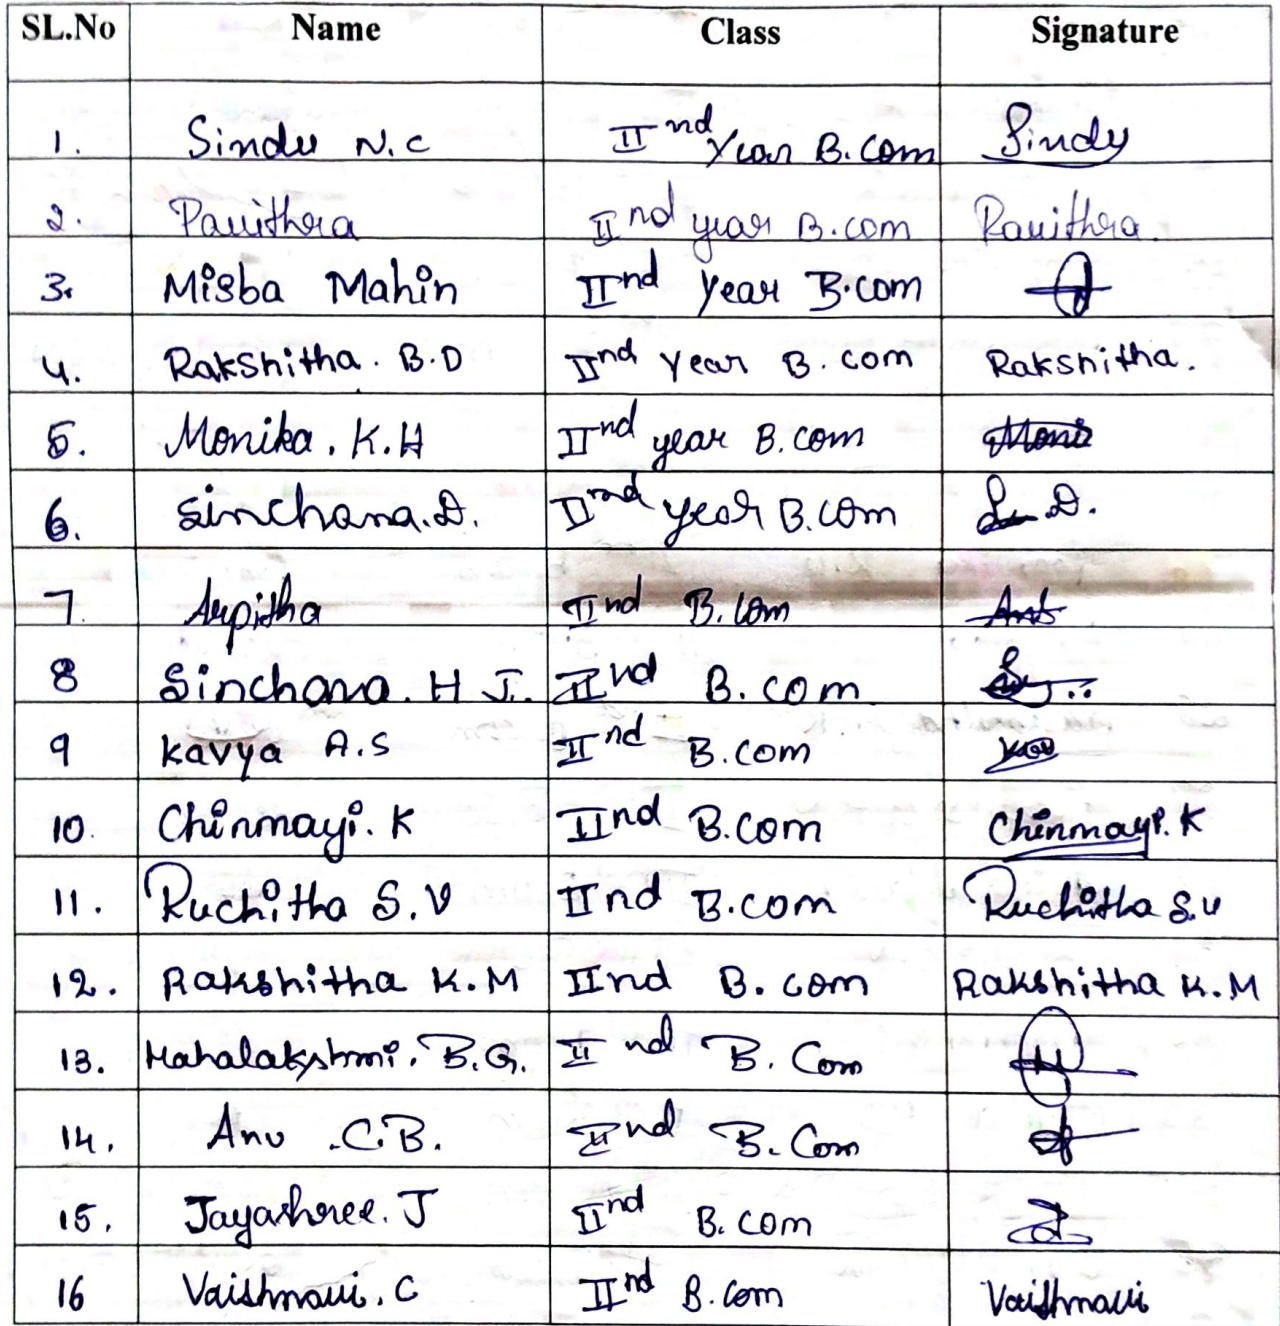 SL.No Name Class Signature
1. Sindu N.C IInd Year B.Com Sindu
2. Pavithra IInd year B.com Pavithra.
3. Misba Mahin IInd Year B.com
4. Rakshitha. B.D IInd Year B.com Rakshitha.
5. Monika. K.H IInd year B.com Moni
6. Sinchana.D. IInd year B.com D.
7 Arpitha IInd B.Com
8 Sinchana. H J. IInd B.com
9 Kavya A.S IInd B.com
10. Chinmayi. K IInd B.com Chinmayi. K
11. Ruchitha S.V IInd B.com Ruchitha S.V
12. Rakshitha K.M IInd B.com Rakshitha K.M
13. Mahalakshmi. B.G. IInd B.Com
14. Anu .C.B. IInd B.Com
15. Jayashree. J IInd B.com
16 Vaishnavi. C IInd B.Com Vaishnavi